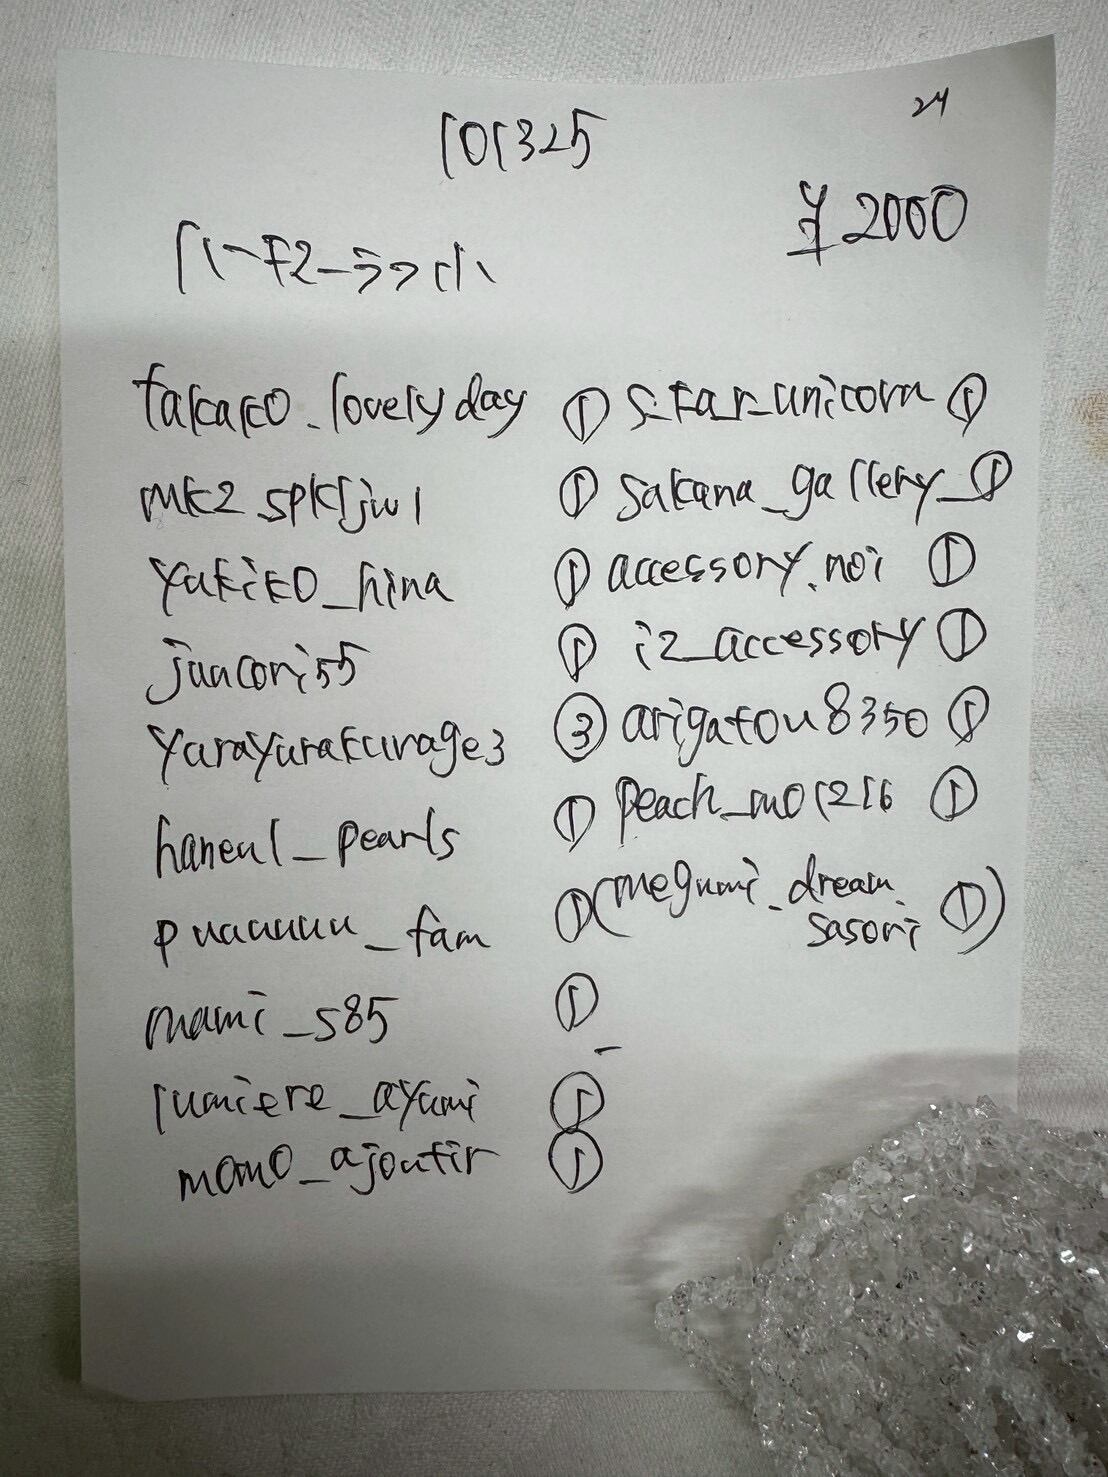 24
101325
¥2000
ハーキマーラフ小
takako_lovelyday ①
mk2_spkljw1 ①
yukiko_hina ①
juncori55 ①
yurayurakurage3 ③
haneul_pearls ①
puuuuuu_fam ①
mami_s85 ①
lumiere_ayumi ①
momo_ajoutir ①
star_unicorn ①
sakana_gallery_ ①
accessory.noi ①
i2_accessory ①
arigatou8350 ①
peach_mo1216 ①
(megumi_dream_
sasori ①)